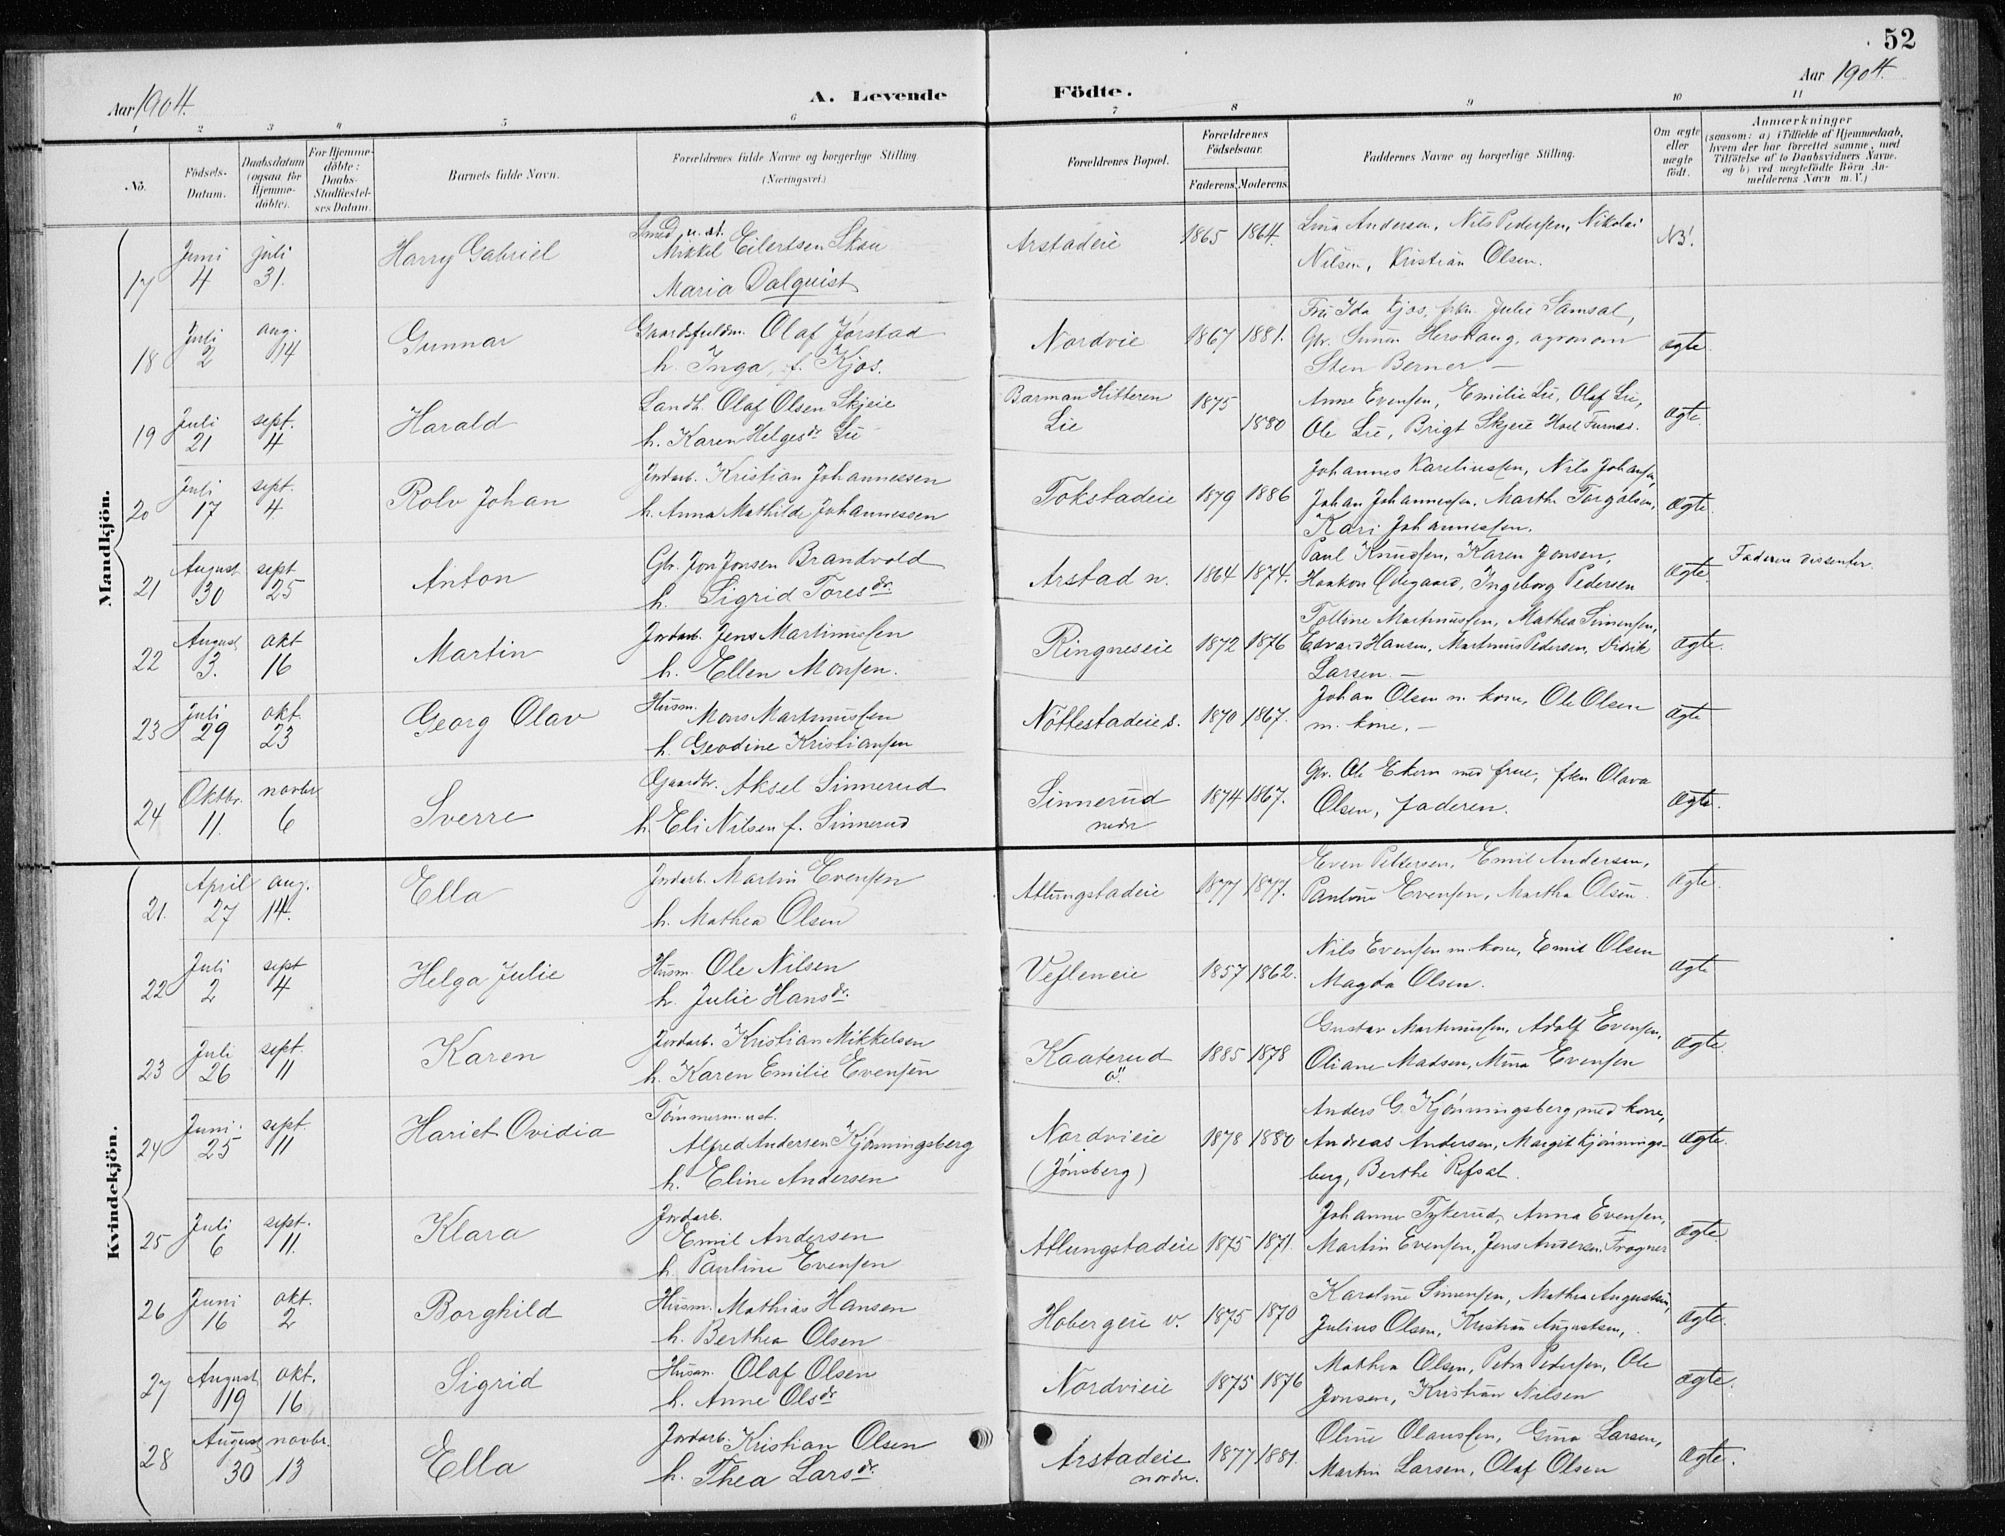 52
Aar 1904.
A. Levende
Födte.
Aar 1904.
1 2 3 4 5 6 7 8 9 10 11
No.
Födsels-
Datum.
Daabsdatum
(ogsaa for
Hjemme-
döbte).
For Hjemme-
döbte:
Daabs-
Stadfæstel-
ses Datum.
Barnets fulde Navn.
Forældrenes fulde Navne og borgerlige Stilling
(Næringsvei.)
Forældrenes Bopæl.
Forældrenes
Födselsaar.
Faderens. Moderens.
Faddernes Navne og borgerlige Stilling.
Om ægte
eller
uægte
födt.
Anmærkninger
(saasom: a) i Tilfælde af Hjemmedaab,
hvem der har forrettet samme, med
Tilföielse af to Daabsvidners Navne.
og b) ved uægtefödte Börn An-
melderens Navn m. V.)
Mandkjön.
17 Juni 4 juli 31. Harry Gabriel
Smed
Mikkel Eilertsen Skau
Maria Dalquist
Arstadeie 1865 1864.
Lina Andersen, Nils Pedersen, Nikolai
Nilsen, Kristian Olsen.
18 Juli 2 aug. 14 Gunnar
Gaardsfuldm. Olaf Jørstad
h. Inga, f. Kjos.
Nordvie 1867 1881.
Fru Ida Kjos, frkn. Julie Samsal,
Gbr. Simen Hershaug, agronom
Sten Berner –
ægte.
19 Juli 21 sept. 4 Harald
Landh. Olaf Olsen Skjeie
h. Karen Helgesdr. Lie
Barman Hitteren
Lie 1875 1880
Anne Evensen, Emilie Lie, Olaf Lie,
Ole Lie, Brigt Skjeie Hoel Furnæs.
ægte.
20 Juli 17 sept. 4 Rolv Johan
Jordarb. Kristian Johannessen
h. Anna Mathilde Johannessen
Tokstadeie 1879 1886
Johannes Karelinssen, Nils Johansen,
Johan Johannessen, Marthe Torgalsen,
Kari Johannessen.
ægte.
21 August 30 sept 25 Anton
Gbr. Jon Jonsen Brandvold
h. Sigrid Toresdr.
Arstad n. 1864 1874.
Paul Knudsen, Karen Jonsen,
Haakon Ødegaard, Ingeborg Pedersen
ægte.
Faderen dissenter.
22 August 3. okt 16 Martin
Jordarb. Jens Martinussen
h. Ellen Monsen.
Ringneseie 1872 1876
Tolline Martinussen, Mathea Simensen,
Edvard Hansen, Martinus Pedersen, Didrik
Larsen. –
ægte.
23 Juli 29 okt. 23 Georg Olav
Husm.
Mons Martinussen
h. Geodine Kristiansen
Nøttestadeie s. 1870 1867.
Johan Olsen m. kone, Ole Olsen
m. kone. –
ægte
24 Oktbr. 11. novbr 6 Sverre
Gaardbr. Aksel Sinnerud
h. Eli Nilsen f. Sinnerud
Sinnerud
nedr 1874 1867.
Gbr. Ole Ekern med frue, frkn Olava
Olsen, faderen.
ægte.
Kvindekjön.
21. April 27 aug. 14. Ella
Jordarb. Martin Evensen
h. Mathea Olsen
Atlungstadeie 1877 1877.
Even Pettersen, Emil Andersen,
Pauline Evensen, Martha Olsen.
ægte.
22 Juli 2 sept 4 Helga Julie
Husm. Ole Nilsen
h. Julie Hansdr.
Vefleneie 1857 1862.
Nils Evensen m. kone, Emil Olsen
Magda Olsen.
ægte
23 Juli 26 sept. 11 Karen
Jordarb. Kristian Mikkelsen
h. Karen Emilie Evensen
Kaaterud
ö. 1885 1878
Gustav Martinussen, Adolf Evensen,
Oliane Madsen, Mina Evensen
ægte.
24 Juni. 25 sept. 11 Hariet Ovidia
Tømmerm. ust.
Alfred Andersen Kjønningsberg
h. Eline Andersen
Nordvieie
(Jønsberg) 1878 1880
Anders G. Kjønningsberg med kone,
Andreas Andersen, Margit Kjønnings-
berg, Berthe Refsal.
ægte.
25 Juli 6 sept. 11. Klara
Jordarb.
Emil Andersen
h. Pauline Evensen
Atlungstadeie 1875 1871.
Johanne Tykerud, Anna Evensen,
Martin Evensen, Jens Andersen Frogner
ægte.
26 Juni 16 okt. 2 Borghild
Husm. Mathias Hansen
h. Berthea Olsen
Hobergeie v. 1875 1870
Karoline Simensen, Mathea Augustsen,
Julius Olsen, Kristian Augustsen,
ægte.
27 August 19 okt. 16 Sigrid
Husm. Olaf Olsen
h. Anne Olsdr
Nordvieie 1875 1876
Mathea Olsen, Petra Pedersen, Ole
Jonsen, Kristian Nilsen
ægte.
28 August 30 novbr. 13 Ella
Jordarb. Kristian Olsen
h. Thea Larsdr.
Arstadeie
nordre. 1877 1881.
Oline Olaussen, Gina Larsen,
Martin Larsen, Olaf Olsen
ægte.